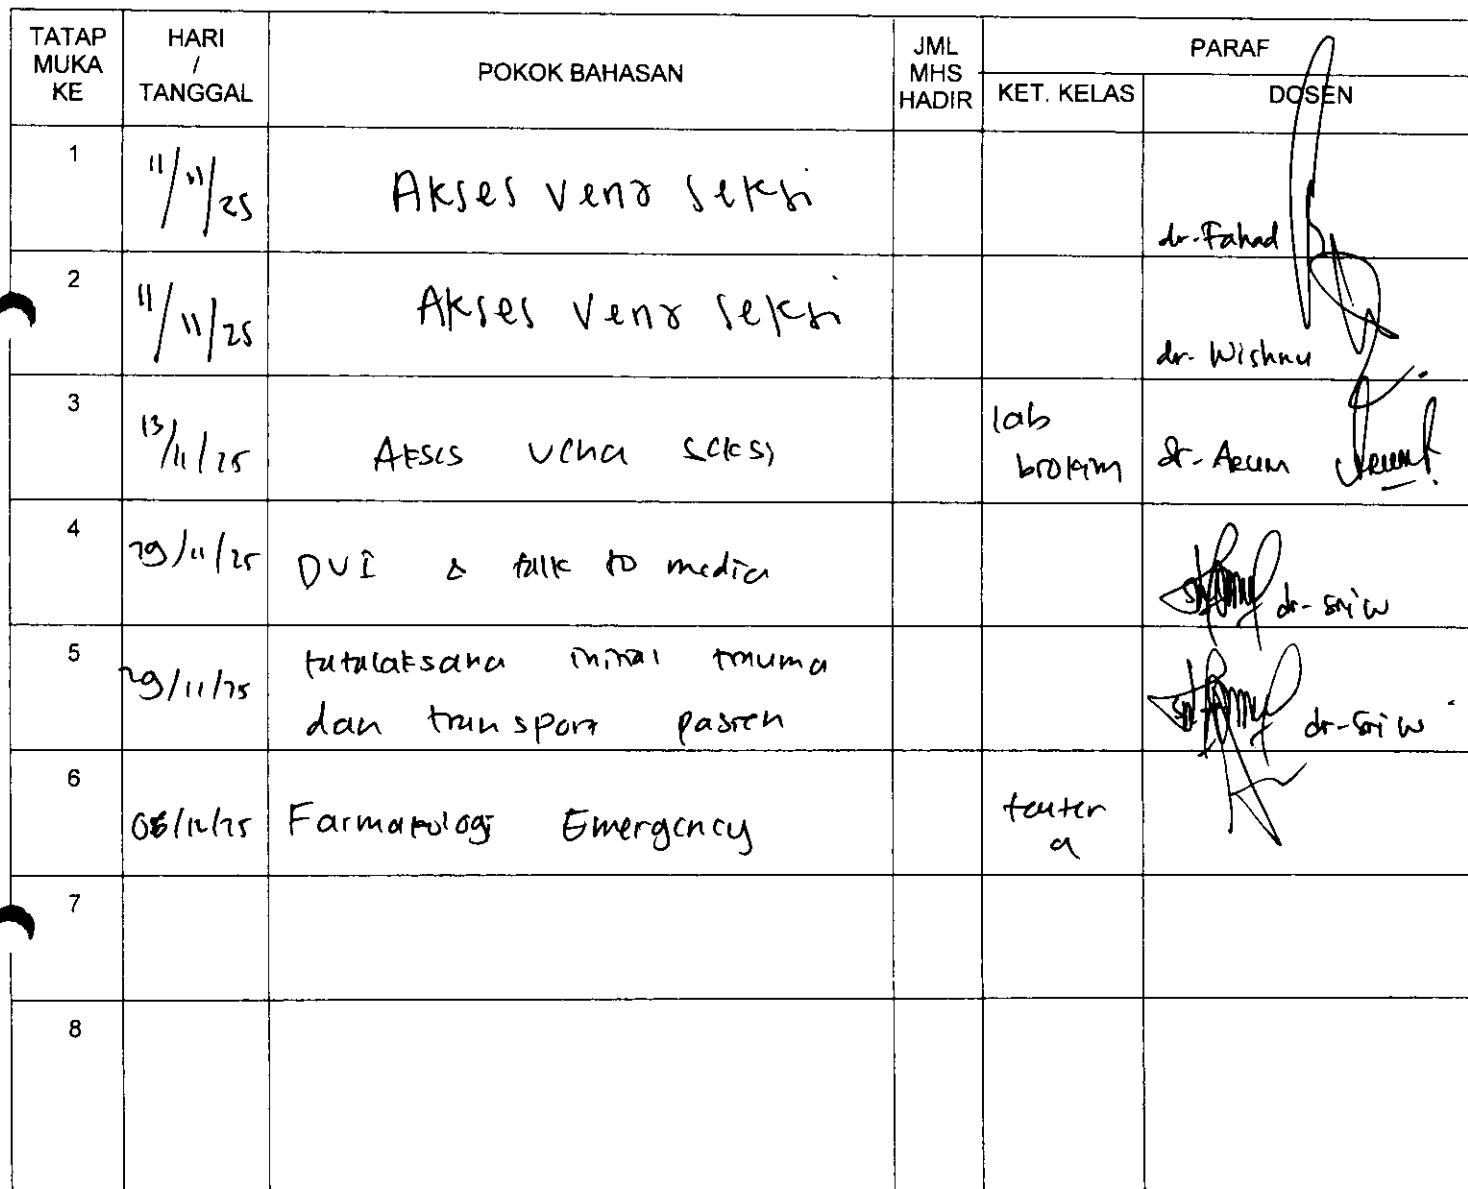 TATAP MUKA KE
HARI / TANGGAL
POKOK BAHASAN
JML MHS HADIR
PARAF
KET. KELAS
DOSEN
1
11/11/25
Akses vena seksi
dr. Fahad
2
11/11/25
Akses vena seksi
dr. Wishnu
3
13/11/25
Akses vena seksi
lab
biokim
dr. Arum
4
29/11/25
DVI & talk to media
dr. Sri W
5
29/11/25
tatalaksana inisial trauma
dan transport pasien
dr. Sri W
6
/12/25
Farmakologi Emergency
teater
a
7
8